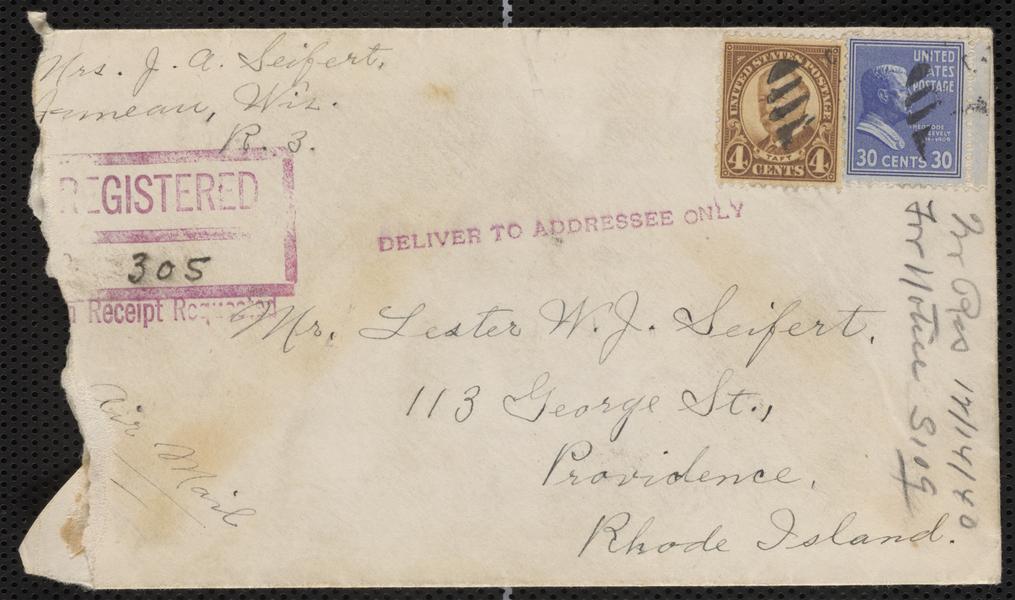 Mrs. J. A. Seifert,
Juneau, Wis.
R. 3.
REGISTERED
305
Receipt Requested
DELIVER TO ADDRESSEE ONLY
UNITED STATES POSTAGE
TAFT
4 CENTS 4
UNITED
STATES
POSTAGE
THEODORE
ROOSEVELT
30 CENTS 30
Mr. Lester W. J. Seifert,
113 George St.,
Providence,
Rhode Island.
Air Mail
12/14/40
For Notice